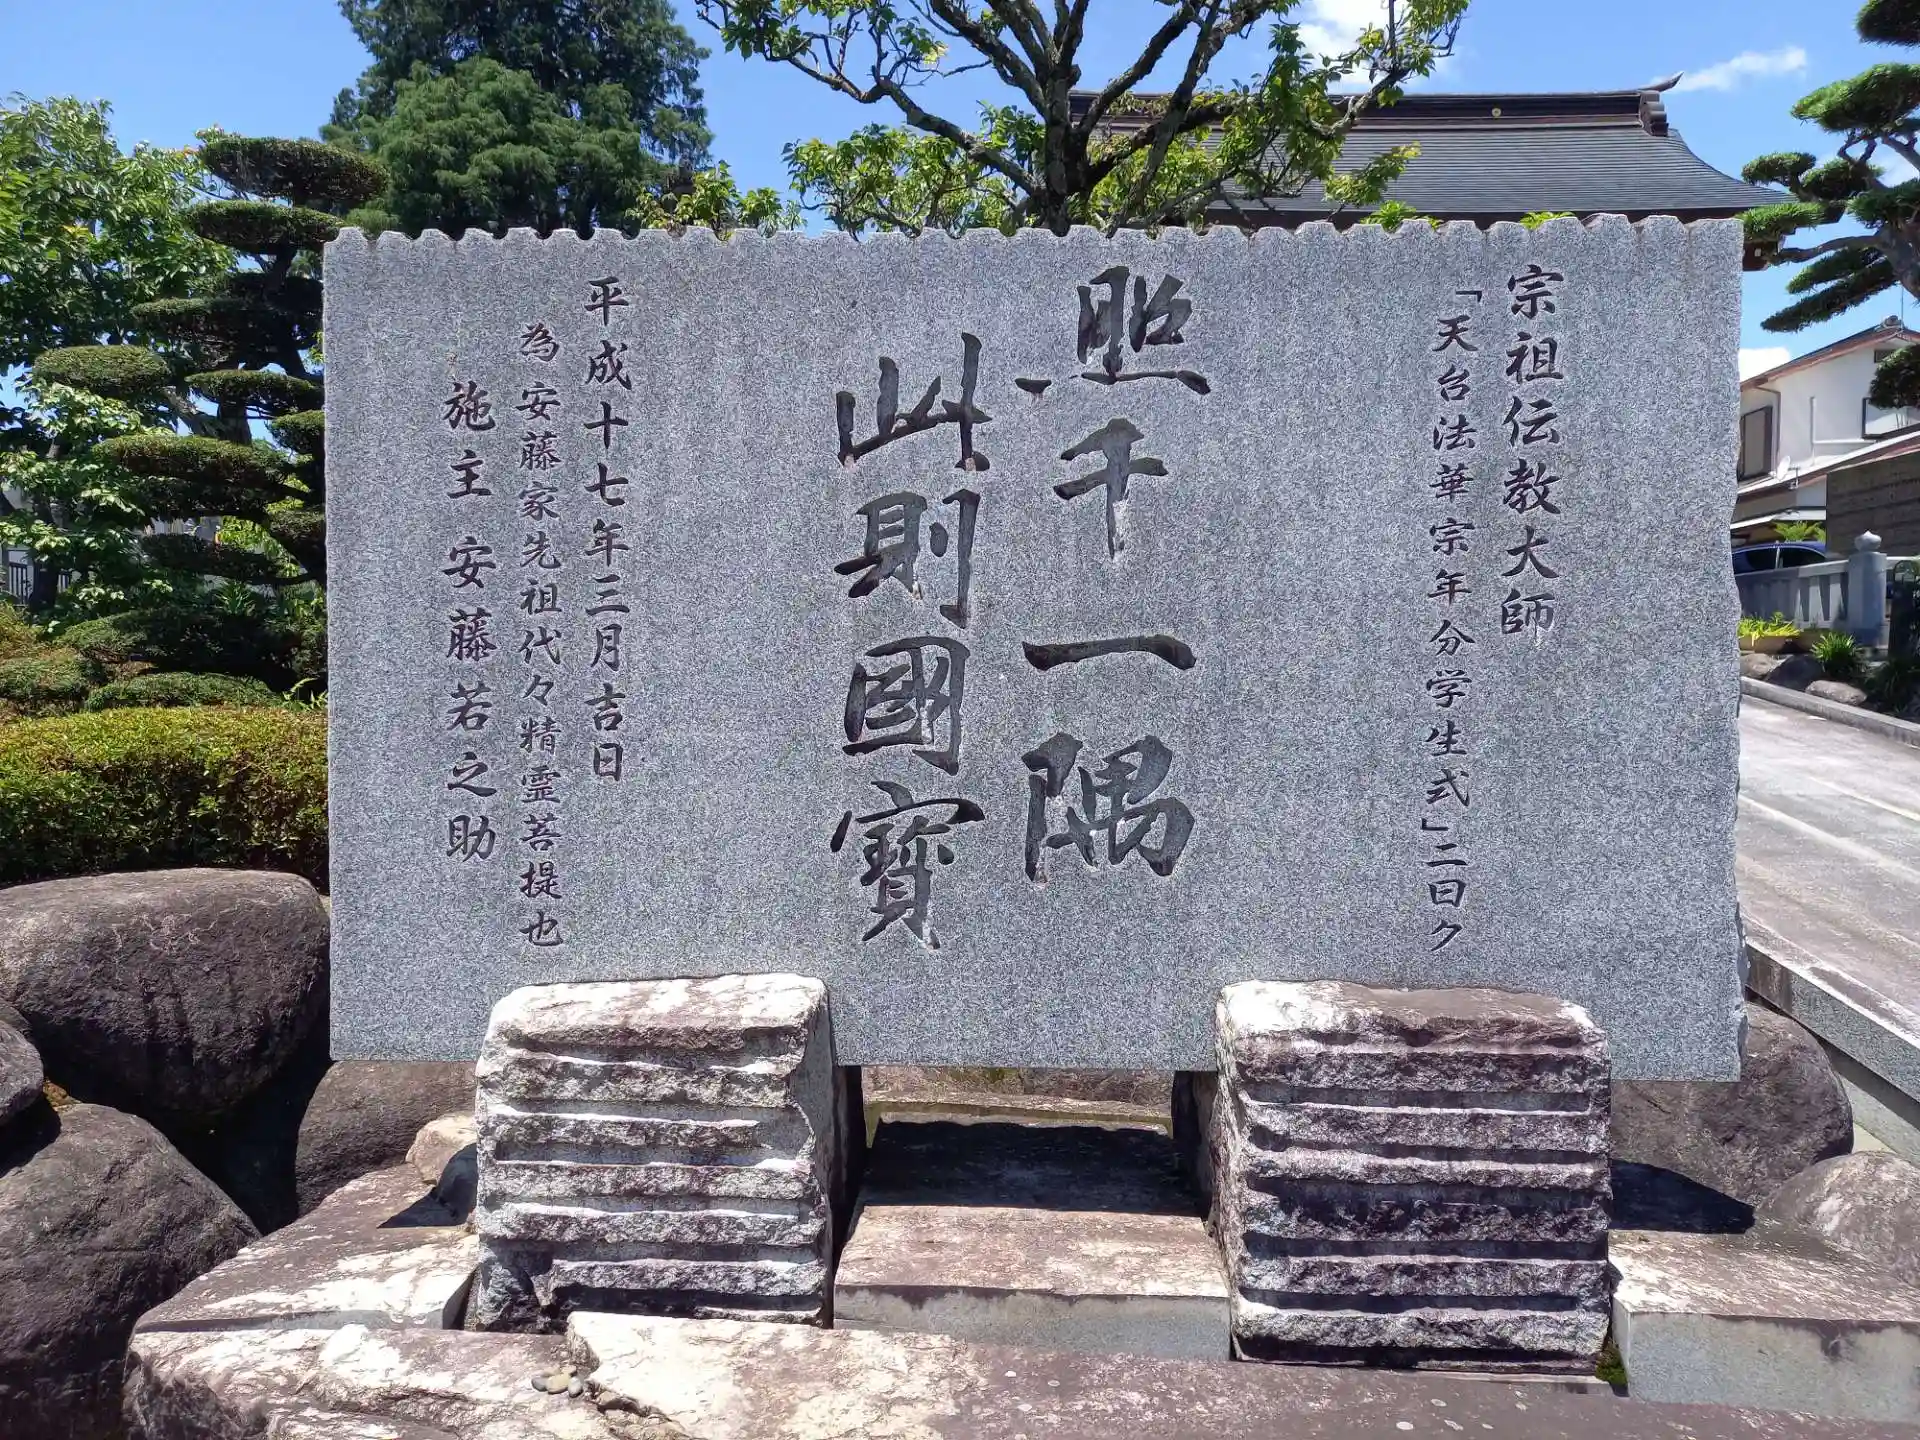 宗祖伝教大師
「天台法華宗年分学生式」二曰ク
照千一隅
此則國寶
平成十七年三月吉日
為安藤家先祖代々精霊菩提也
施主安藤若之助